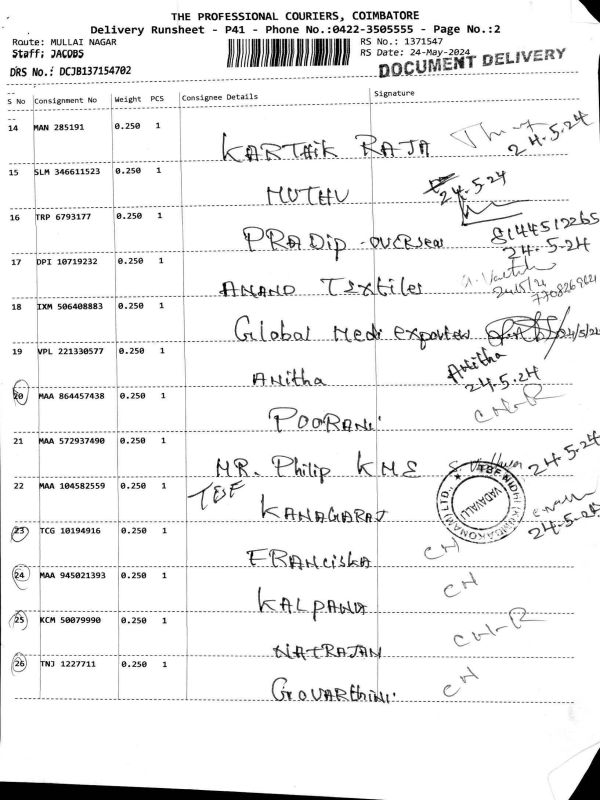 THE PROFESSIONAL COURIERS, COIMBATORE
Delivery Runsheet - P41 - Phone No.:0422-3505555 - Page No.:2
Route: MULLAI NAGAR RS No.: 1371547
Staff: JACOBS RS Date: 24-May-2024
DOCUMENT DELIVERY
DRS No.: DCJB137154702
S No Consignment No Weight PCS Consignee Details Signature
14 MAN 285191 0.250 1
KARTHIK RAJA 24.5.24
15 SLM 346611523 0.250 1
MUTHU 24.5.24
16 TRP 6793177 0.250 1
PRADip - overseas 8144512265
24.5.24
17 DPI 10719232 0.250 1
ANAND Textiles
18 IXM 506408883 0.250 1
Global Medi exporters 24/5/24
19 VPL 221330577 0.250 1
Anitha Anitha
24.5.24
20 MAA 864457438 0.250 1
POORANI CN-R
21 MAA 572937490 0.250 1
MR. Philip KME 24.5.24
22 MAA 104582559 0.250 1
TBF KANAGARAJ 24.5.24
TBF NIDHI (KUMBAKONAM) LTD.,
VADAVALLI
23 TCG 10194916 0.250 1
FRANciska CN
24 MAA 945021393 0.250 1
KALPANA CN
25 KCM 50079990 0.250 1
NATRAJAN CN-R
26 TNJ 1227711 0.250 1
GOVARthini CN